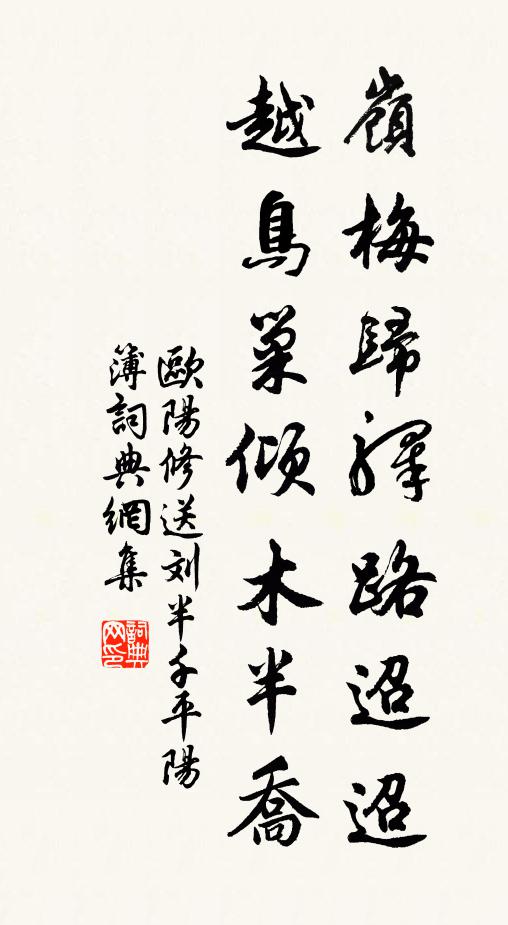 嶺梅歸驛路迢迢
越鳥巢傾木半喬
歐陽修送刘半千平陽
簿詞典網集
詞典
网印